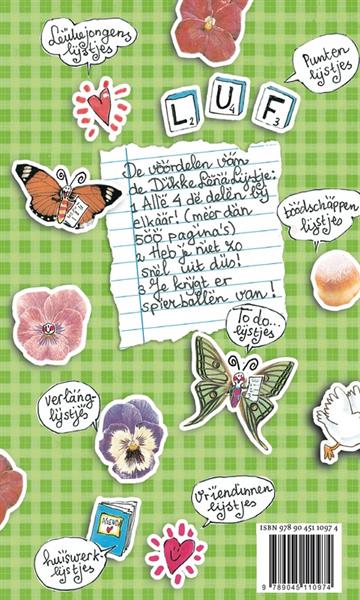 Leukejongens
lijstjes
Punten
lijstjes
L U F
2 4 3
De voordelen van
de Dikke Lena Lijstje:
1 Alle 4 de delen bij
elkaar! (meer dan
500 pagina's)
2 Heb je niet zo
snel uit dus!
3 Je krijgt er
spierballen van!
boodschappen
lijstjes
To do...
lijstjes
Verlang-
lijstjes
Vriendinnen
lijstjes
AGENDA
huiswerk-
lijstjes
ISBN 978 90 451 1097 4
9 789045 110974